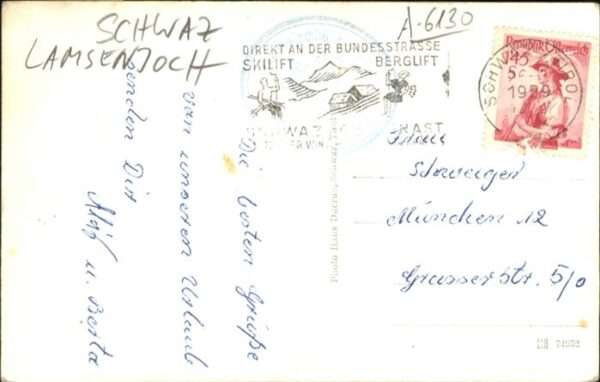 SCHWAZ
LAMSENJOCH
A-6130
DIREKT AN DER BUNDESSTRASSE
SKILIFT BERGLIFT
SCHWAZ RAST
Republik Österreich
1.45
SCHWAZ TIROL
Die besten Grüße
von unserem Urlaub
senden Dir
u. Berta
Frau
München 12
Grasserstr. 5/0
Photo Hans